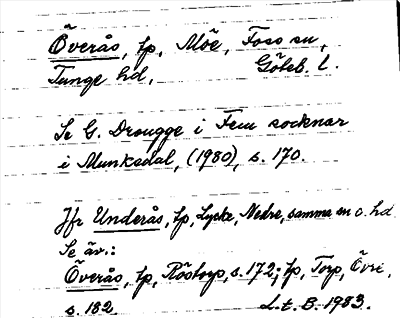 Överås, tp, Möe, Foss sn,
Tunge hd, Göteb. l.
Se G. Drougge i Fem socknar
i Munkedal, (1980), s. 170.
Jfr Underås, tp, Lycke, Nedre, samma sn o. hd
Se äv.:
Överås, tp, Röstorp, s. 172; tp, Torp, Övre,
s. 182. L.t. B. 1983.